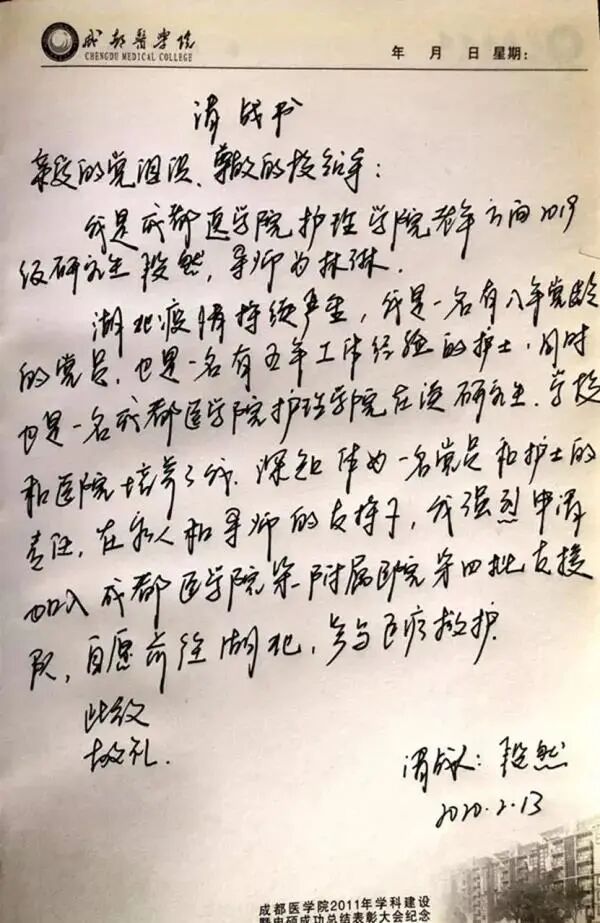 成都医学院
CHENGDU MEDICAL COLLEGE
年 月 日 星期:
请战书
亲爱的党组织、尊敬的校领导:
我是成都医学院护理学院老年方向2019
级研究生段然,导师为林琳.
湖北疫情持续严重,我是一名有八年党龄
的党员,也是一名有五年工作经验的护士,同时
也是一名成都医学院护理学院在读研究生.学校
和医院培养了我.深知作为一名党员和护士的
责任,在家人和导师的支持下,我强烈申请
加入成都医学院第一附属医院第四批支援
队,自愿前往湖北,参与医疗救护.
此致
敬礼.
请战人:段然
2020.2.13
成都医学院2011年学科建设
暨申硕成功总结表彰大会纪念